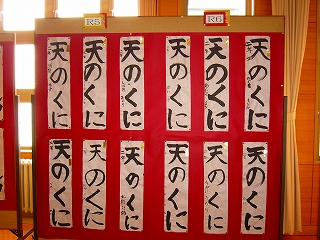 R5
R6
天のくに
天のくに
天のくに
天のくに
天のくに
天のくに
天のくに
天のくに
天のくに
天のくに
天のくに
天のくに